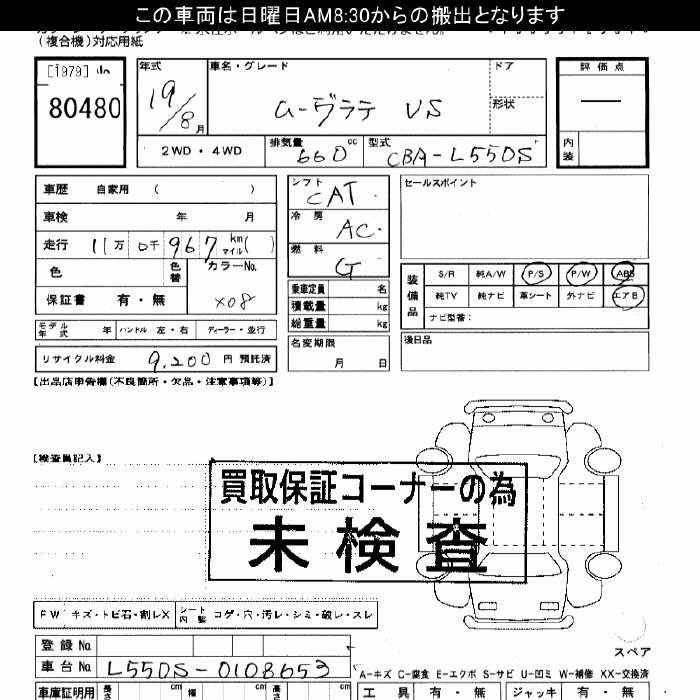 この車両は日曜日AM8:30からの搬出となります
(複合機)対応用紙
[1979]
80480
年式 19/8月
車名・グレード ムーヴラテ VS
ドア
形状
評価点
内装
2WD・4WD
排気量 660cc
型式 CBA-L550S
車歴 自家用 ( )
車検 年 月
走行 11万 0千 967 km マイル( )
色 色替 カラーNo. X08
保証書 有・無
モデル年式 年 ハンドル 左・右 ディーラー・並行
リサイクル料金 9,200 円 預託済
シフト CAT
冷房 AC
燃料 G
乗車定員 名
積載量 kg
総重量 kg
名変期限 月 日
セールスポイント
装備品
S/R 純A/W P/S P/W ABS
純TV 純ナビ 革シート 外ナビ エアB
ナビ型番:
後日品
【出品店申告欄(不良箇所・欠品・注意事項等)】
【検査員記入】
買取保証コーナーの為
未検査
FW キズ・トビ石・割レX
シート内装 コゲ・穴・汚レ・シミ・破レ・スレ
スペア
登録No.
車台No. L550S-0108653
A-キズ C-腐食 E-エクボ S-サビ U-凹ミ W-補修 XX-交換済
車庫証明用 長さ cm 幅 cm 高さ cm
工具 有・無 ジャッキ 有・無